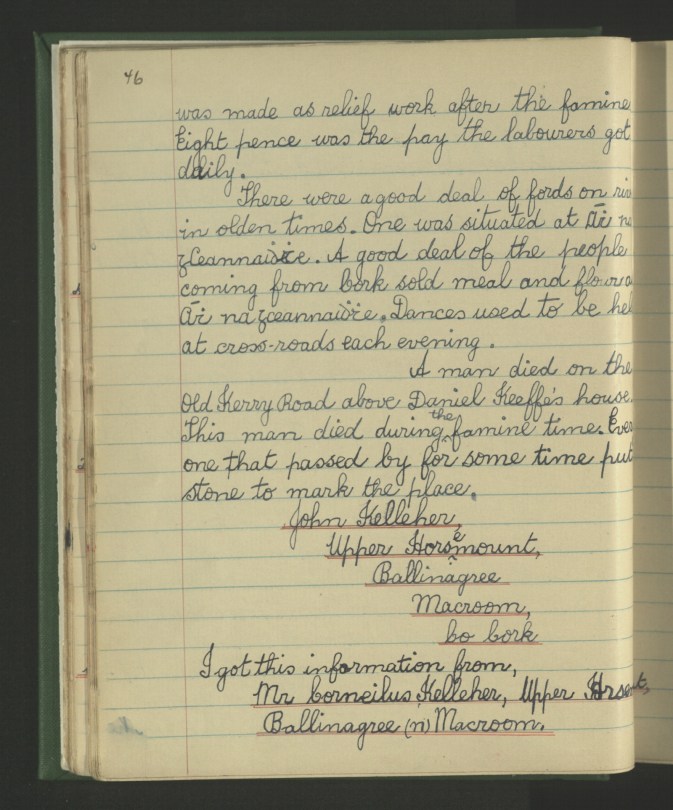 46
was made as relief work after the famine
Eight pence was the pay the labourers got
daily.
There were a good deal of fords on riv
in olden times. One was situated at Áṫ na
gCeannaiḋṫe. A good deal of the people
coming from Cork sold meal and flour a
Áṫ na gceannaiḋṫe. Dances used to be hel
at cross-roads each evening.
A man died on the
Old Kerry Road above Daniel Keeffe's house.
This man died during the famine time. Ever
one that passed by for some time put
stone to mark the place.
John Kelleher,
Upper Horsemount,
Ballinagree
Macroom,
Co Cork
I got this information from,
Mr Corneilus Kelleher, Upper
Ballinagree (n) Macroom.